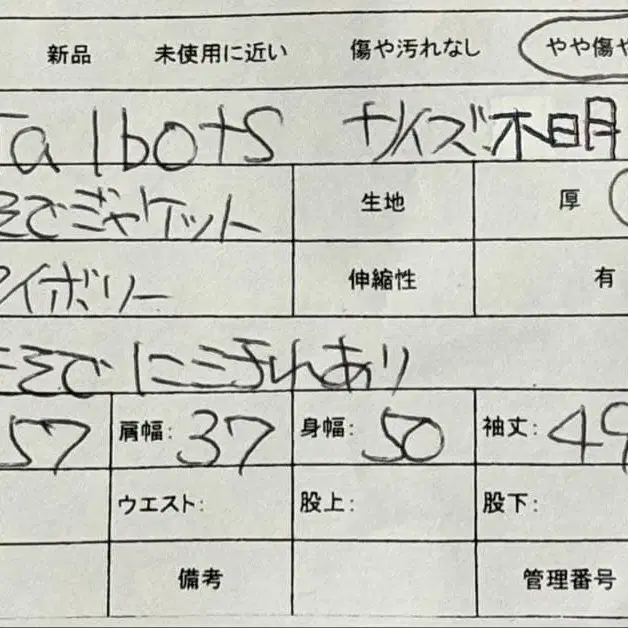 新品 未使用に近い 傷や汚れなし やや傷や
Talbots サイズ:不明
そでジャケット 生地 厚
イボリー 伸縮性 有
そでに汚れあり
57 肩幅: 37 身幅: 50 袖丈: 49
ウエスト: 股上: 股下:
備考 管理番号